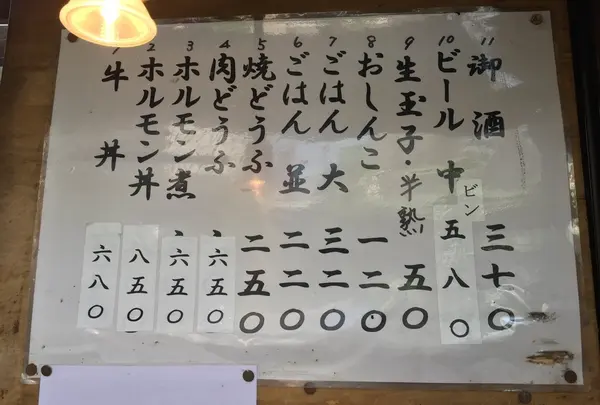 1 牛丼 六八〇
2 ホルモン丼 八五〇
3 ホルモン煮 六五〇
4 肉どうふ 六五〇
5 焼どうふ 二五〇
6 ごはん 並 二二〇
7 ごはん 大 三二〇
8 おしんこ 一二〇
9 生玉子・半熟 五〇
10 ビール 中ビン 五八〇
11 御酒 三七〇